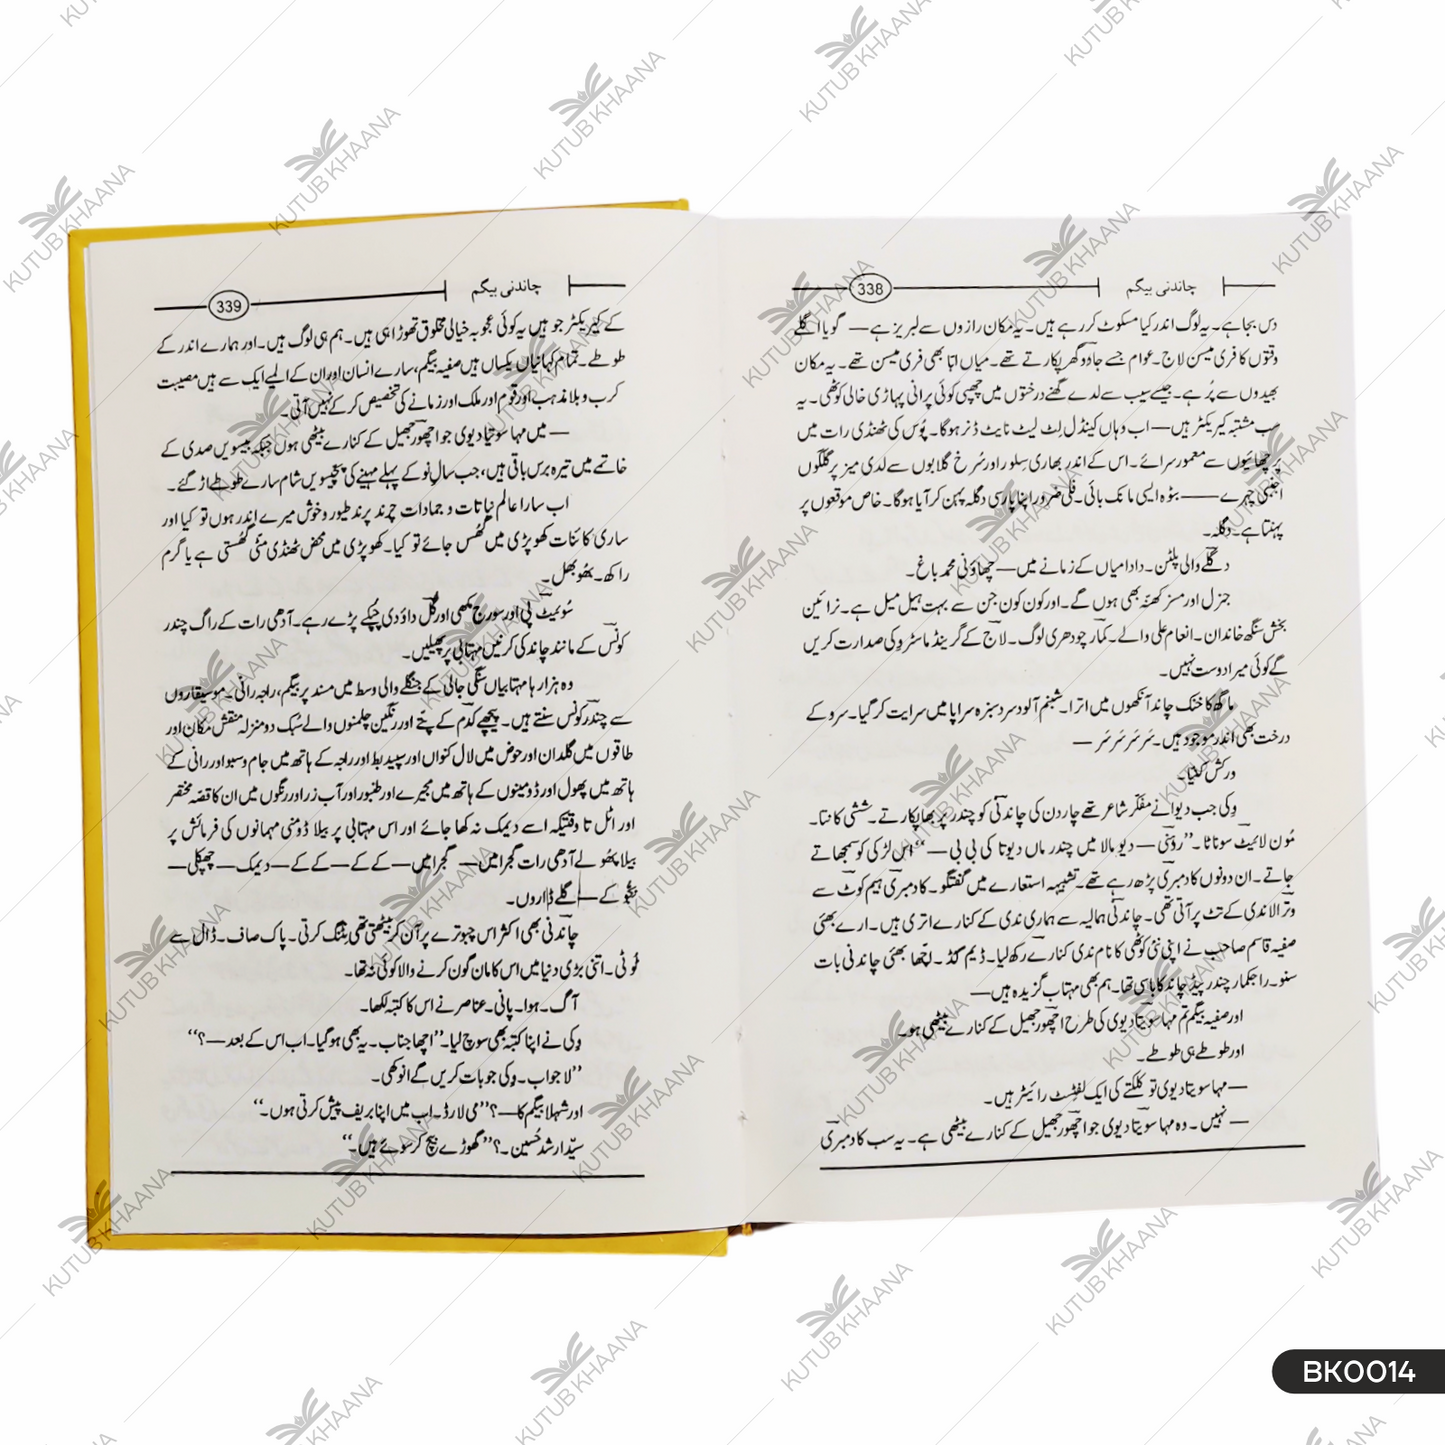 چاندنی بیگم
338
دس بجا ہے۔ یہ لوگ اندر کیا مسکوٹ کر رہے ہیں۔ یہ مکان رازوں سے لبریز ہے — گویا اگلے
وقتوں کا فری میسن لاج۔ عوام جسے جادو گھر پکارتے تھے۔ میاں ابا بھی فری میسن تھے۔ یہ مکان
بھیدوں سے پُر ہے۔ جیسے سیب سے لدے گھنے درختوں میں چھپی کوئی پرانی پہاڑی خالی کوٹھی۔ یہ
سب مشتبہ کیریکٹر ہیں — اب وہاں کینڈل لِٹ لیٹ نایٹ ڈنر ہوگا۔ پوس کی ٹھنڈی رات میں
پرچھائیوں سے معمور سرائے۔ اس کے اندر بھاری سِلور اور سُرخ گلابوں سے لدی میز پر گلگوں
اجنبی چہرے —— بٹوہ ایسی مانک بائی۔ فلی ضرور اپنا پارسی دگلہ پہن کر آیا ہوگا۔ خاص موقعوں پر
پہنتا ہے۔ دگلہ۔
دگلے والی پلٹن۔ دادا میاں کے زمانے میں — چھاؤنی محمد باغ۔
جنرل اور مسز کھنہ بھی ہوں گے۔ اور کون کون جن سے بہت ہیل میل ہے۔ نرائین
بخش سنگھ خاندان۔ انعام علی والے۔ کمار چودھری لوگ۔ لاج کے گرینڈ ماسٹر وکی صدارت کریں
گے کوئی میرا دوست نہیں۔
ماگھ کا خنک چاند آنکھوں میں اترا۔ شبنم آلود سرد سبزہ سراپا میں سرایت کر گیا۔ سرو کے
درخت بھی اندر موجود ہیں۔ سَر سَر سَر سَر —
ورکش کنیا۔
وکی جب دیوانے مفکر شاعر تھے چار دن کی چاندنی کو چندر پربھا پکارتے۔ ششی کانتا۔
مُون لائیٹ سوناٹا۔ ’’روشنی — دیو مالا میں چندر ماں دیوتا کی بی بی —‘‘ اس لڑکی کو سمجھاتے
جاتے۔ ان دونوں کادمبری پڑھ رہے تھے۔ تشبیہہ استعارے میں گفتگو۔ کادمبری ہیم کوٹ سے
وترالا ندی کے تٹ پر آتی تھی۔ چاندنی ہمالیہ سے ہماری ندی کے کنارے اتری ہیں۔ ارے بھئی
صفیہ قاسم صاحب نے اپنی نئی کوٹھی کا نام ندی کنارے رکھ لیا۔ ڈیم گڈ۔ اچھا بھئی چاندنی بات
سنو۔ راجکمار چندر پیڈ چاند کا باسی تھا۔ ہم بھی مہتاب گزیدہ ہیں —
اور صفیہ بیگم تم مہا سویتا دیوی کی طرح اچھور جھیل کے کنارے بیٹھی ہو۔
اور طوطے ہی طوطے۔
— مہا سویتا دیوی تو کلکتے کی ایک لفٹسٹ رائیٹر ہیں۔
— نہیں۔ وہ مہا سویتا دیوی جو اچھور جھیل کے کنارے بیٹھی ہے۔ یہ سب کادمبری
چاندنی بیگم
339
کے کیریکٹر جو ہیں یہ کوئی عجوبہ خیالی مخلوق تھوڑا ہی ہیں۔ ہم ہی لوگ ہیں۔ اور ہمارے اندر کے
طوطے۔ تمام کہانیاں یکساں ہیں صفیہ بیگم، سارے انسان اور ان کے المیے ایک سے ہیں مصیبت
کرب و بلا مذہب اور قوم اور ملک اور زمانے کی تخصیص کر کے نہیں آتی۔
— میں مہا سویتا دیوی جو اچھور جھیل کے کنارے بیٹھی ہوں جبکہ بیسویں صدی کے
خاتمے میں تیرہ برس باقی ہیں، جب سالِ نو کے پہلے مہینے کی پچیسویں شام سارے طوطے اڑ گئے۔
اب سارا عالم نباتات و جمادات چرند پرند طیور و خوش میرے اندر ہوں تو کیا اور
ساری کائنات کھوپڑی میں گھُس جائے تو کیا۔ کھوپڑی میں محض ٹھنڈی مٹی گھُستی ہے یا گرم
راکھ۔ بھُوبھل۔
سُوئیٹ پی اور سورج مکھی اور گل داؤدی چُپکے پڑے رہے۔ آدھی رات کے راگ چندر
کونس کے مانند چاند کی کرنیں مہتابی پر پھیلیں۔
وہ ہزارہا مہتابیاں سنگی جالی کے جنگلے والی وسط میں مسند پر بیگم، راجہ رانی۔ موسیقاروں
سے چندر کونس سنتے ہیں۔ پیچھے کدم کے پتے اور رنگین چلمنوں والے سُبک دو منزلہ منقش مکان اور
طاقوں میں گلدان اور حوض میں لال کنول اور سپید بط اور راجہ کے ہاتھ میں جام و سبو اور رانی کے
ہاتھ میں پھول اور ڈومینوں کے ہاتھ میں مجیرے اور طنبور اور آب زر اور رنگوں میں ان کا قصّہ مختصر
اور اٹل تا وقتیکہ اسے دیمک نہ کھا جائے اور اس مہتابی پر بیلا ڈومنی مہمانوں کی فرمائش پر
بیلا پھولے آدھی رات گجرا میں — گجرا میں — کے کے — کے کے — دیمک — چھپکلی —
کے — گلے ڈاروں۔
چاندنی بھی اکثر اس چبوترے پر آن کر بیٹھتی تھی بٹنگ کرتی۔ پاک صاف۔ ڈال سے
ٹوٹی۔ اتنی بڑی دنیا میں اس کا مان گون کرنے والا کوئی نہ تھا۔
آگ۔ ہوا۔ پانی۔ عناصر نے اس کا کتبہ لکھا۔
وکی نے اپنا کتبہ بھی سوچ لیا۔ ’’اچھا جناب۔ یہ بھی ہو گیا۔ اب اس کے بعد —؟‘‘
’’لاجواب۔ وکی جو بات کریں گے انوکھی۔
اور شہلا بیگم کا —؟‘‘ ’’می لارڈ۔ اب میں اپنا بریف پیش کرتی ہوں۔‘‘
سیّد ارشد حُسین۔؟‘‘ گھوڑے بیچ کر سوئے ہیں۔‘‘
KUTUB KHAANA
BK0014